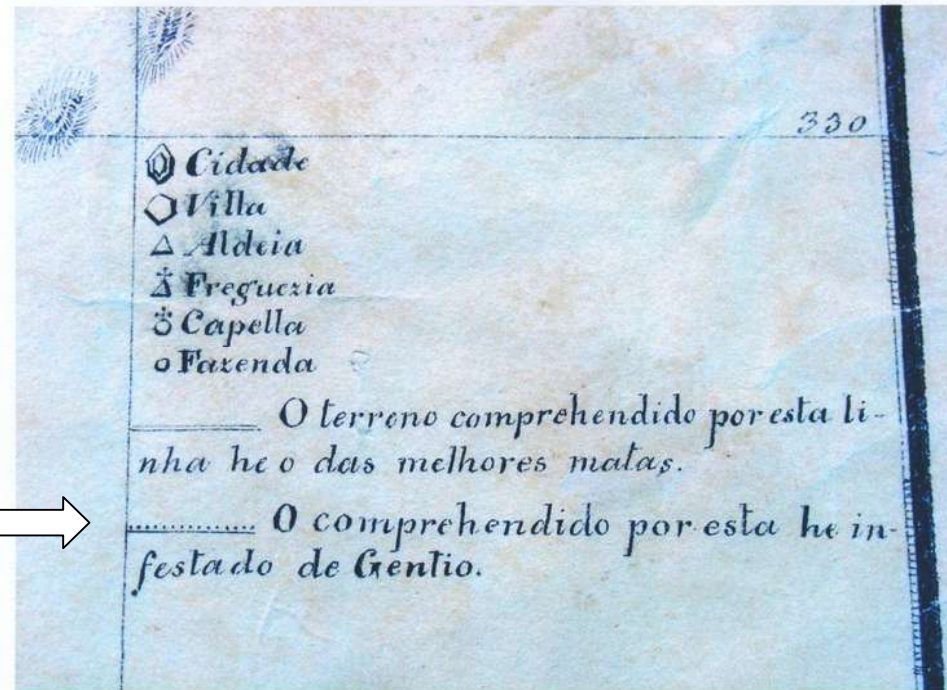 330
Cidade
Villa
Aldeia
Freguezia
Capella
Fazenda
O terreno comprehendido por esta li-
nha he o das melhores matas.
O comprehendido por esta he in-
festado de Gentio.